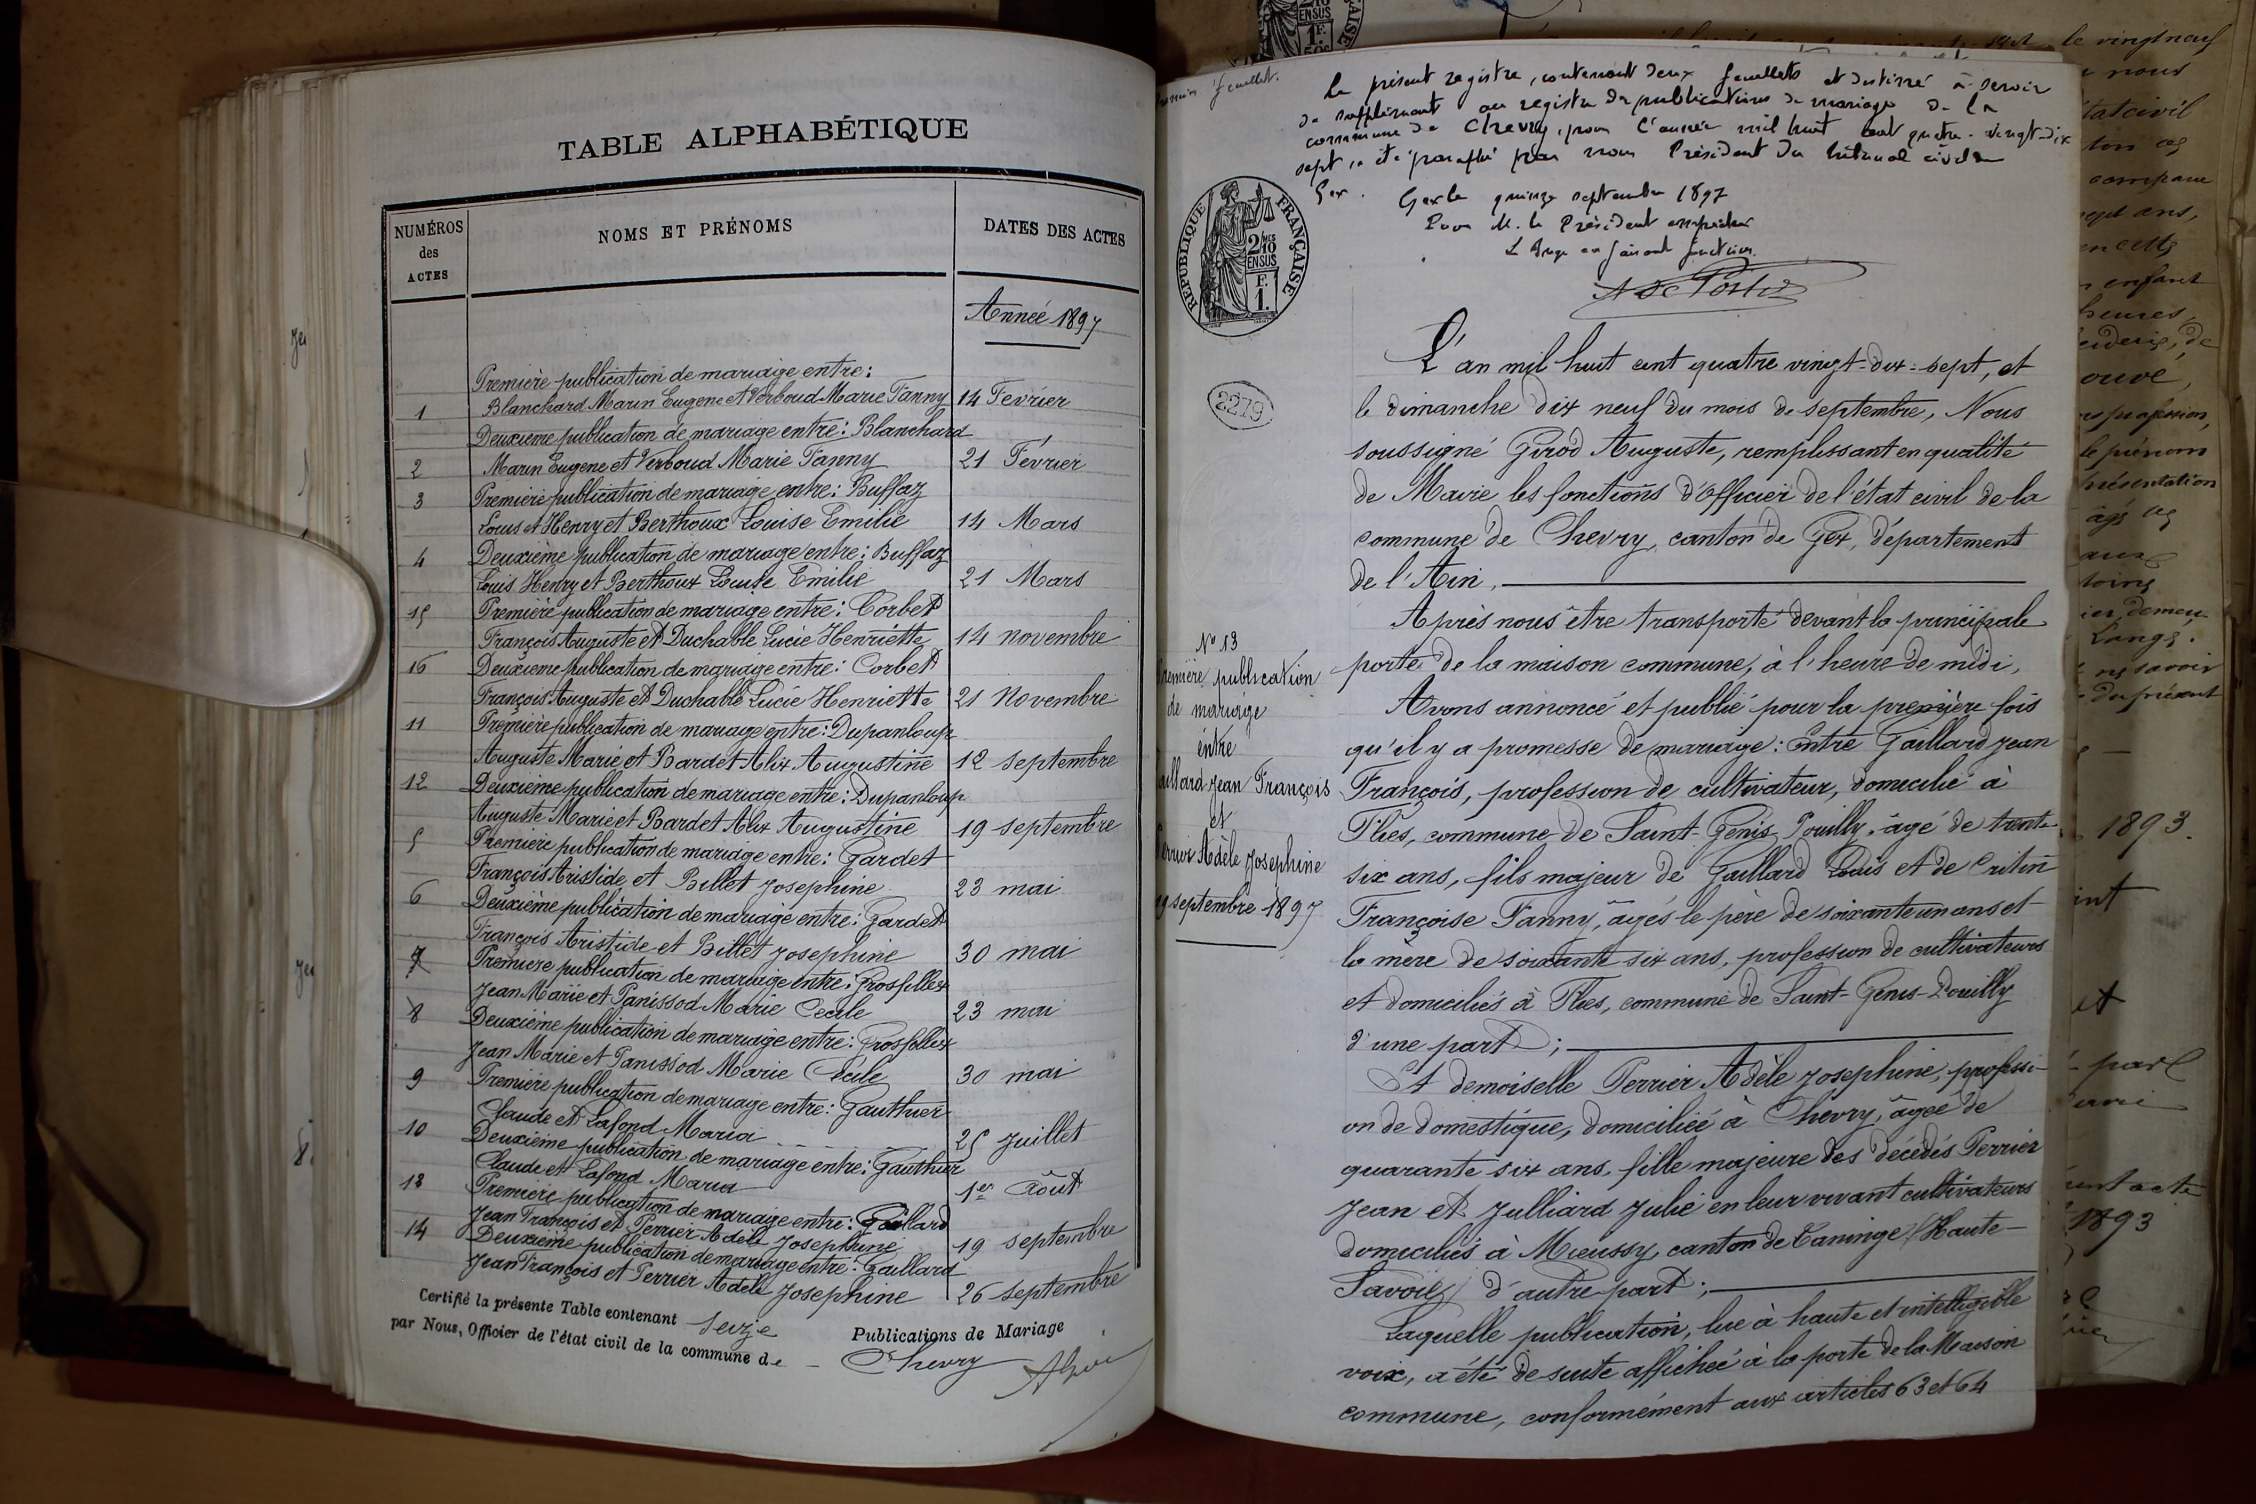 TABLE ALPHABÉTIQUE
NUMÉROS
des
ACTES
NOMS ET PRÉNOMS
DATES DES ACTES
Année 1897
Première publication de mariage entre:
1 Blanchard Marin Eugene et Verboud Marie Fanny 14 Février
Deuxième publication de mariage entre: Blanchard
2 Marin Eugene et Verboud Marie Fanny 21 Février
3 Première publication de mariage entre: Buffaz
Louis et Henry et Berthoux Louise Emilie 14 Mars
4 Deuxième publication de mariage entre: Buffaz
Louis Henry et Berthoux Louise Emilie 21 Mars
15 Première publication de mariage entre: Corbet
François Auguste et Duchable Lucie Henriette 14 novembre
16 Deuxième publication de mariage entre: Corbet
François Auguste et Duchable Lucie Henriette 21 Novembre
11 Première publication de mariage entre: Dupanloup
Auguste Marie et Bardet Alix Augustine 12 septembre
12 Deuxième publication de mariage entre: Dupanloup
Auguste Marie et Bardet Alix Augustine 19 septembre
5 Première publication de mariage entre: Gardet
François Aristide et Billet Josephine 23 mai
6 Deuxième publication de mariage entre: Gardet
François Aristide et Billet Josephine 30 mai
7 Première publication de mariage entre: Grosfillex
Jean Marie et Panissod Marie Cécile 23 mai
8 Deuxième publication de mariage entre: Grosfillex
Jean Marie et Panissod Marie Cécile 30 mai
9 Première publication de mariage entre: Gauthier
Claude et Lafond Maria 25 Juillet
10 Deuxième publication de mariage entre: Gauthier
Claude et Lafond Maria 1er Août
13 Première publication de mariage entre: Gaillard
Jean François et Perrier Adèle Josephine 19 septembre
14 Deuxième publication de mariage entre: Gaillard
Jean François et Perrier Adèle Josephine 26 septembre
Certifié la présente Table contenant seize Publications de Mariage
par Nous, Officier de l'état civil de la commune de Chevry
feuillet.
Le présent registre, contenant deux feuillets et destiné à servir
de supplément au registre de publications de mariage de la
commune de Chevry, pour l'année mil huit cent quatre-vingt-dix
sept, a été paraphé par nous Président du tribunal civil de
Gex.
Gex le quinze septembre 1897
Pour M. le Président empêché
Le Juge en faisant fonction.
RÉPUBLIQUE FRANÇAISE
2/10mes
EN SUS
1 F.
2279
L'an mil huit cent quatre vingt-dix-sept, et
le dimanche dix neuf du mois de septembre, Nous
soussigné Girod Auguste, remplissant en qualité
de Maire les fonctions d'officier de l'état civil de la
commune de Chevry, canton de Gex, département
de l'Ain,
Après nous être transporté devant la principale
porte de la maison commune, à l'heure de midi,
Avons annoncé et publié pour la première fois
qu'il y a promesse de mariage: Entre Gaillard Jean
François, profession de cultivateur, domicilié à
Flies, commune de Saint-Genis Pouilly, âgé de trente
six ans, fils majeur de Gaillard Louis et de Critin
Françoise Fanny, âgés le père de soixante un ans et
la mère de soixante six ans, profession de cultivateurs
et domiciliés à Flies, commune de Saint-Genis-Pouilly
d'une part;
Et demoiselle Perrier Adèle Josephine, professi-
on de domestique, domiciliée à Chevry, âgée de
quarante six ans, fille majeure des décédés Perrier
Jean et Julliard Julie en leur vivant cultivateurs
domiciliés à Mieussy, canton de Taninge (Haute-
Savoie) d'autre part;
Laquelle publication, lue à haute et intelligible
voix, a été de suite affichée à la porte de la Maison
commune, conformément aux articles 63 et 64
No 13
Première publication
de mariage
entre
Gaillard Jean François
et
Perrier Adèle Josephine
19 septembre 1897
le vingt neuf
nous
état civil
1893.
1893